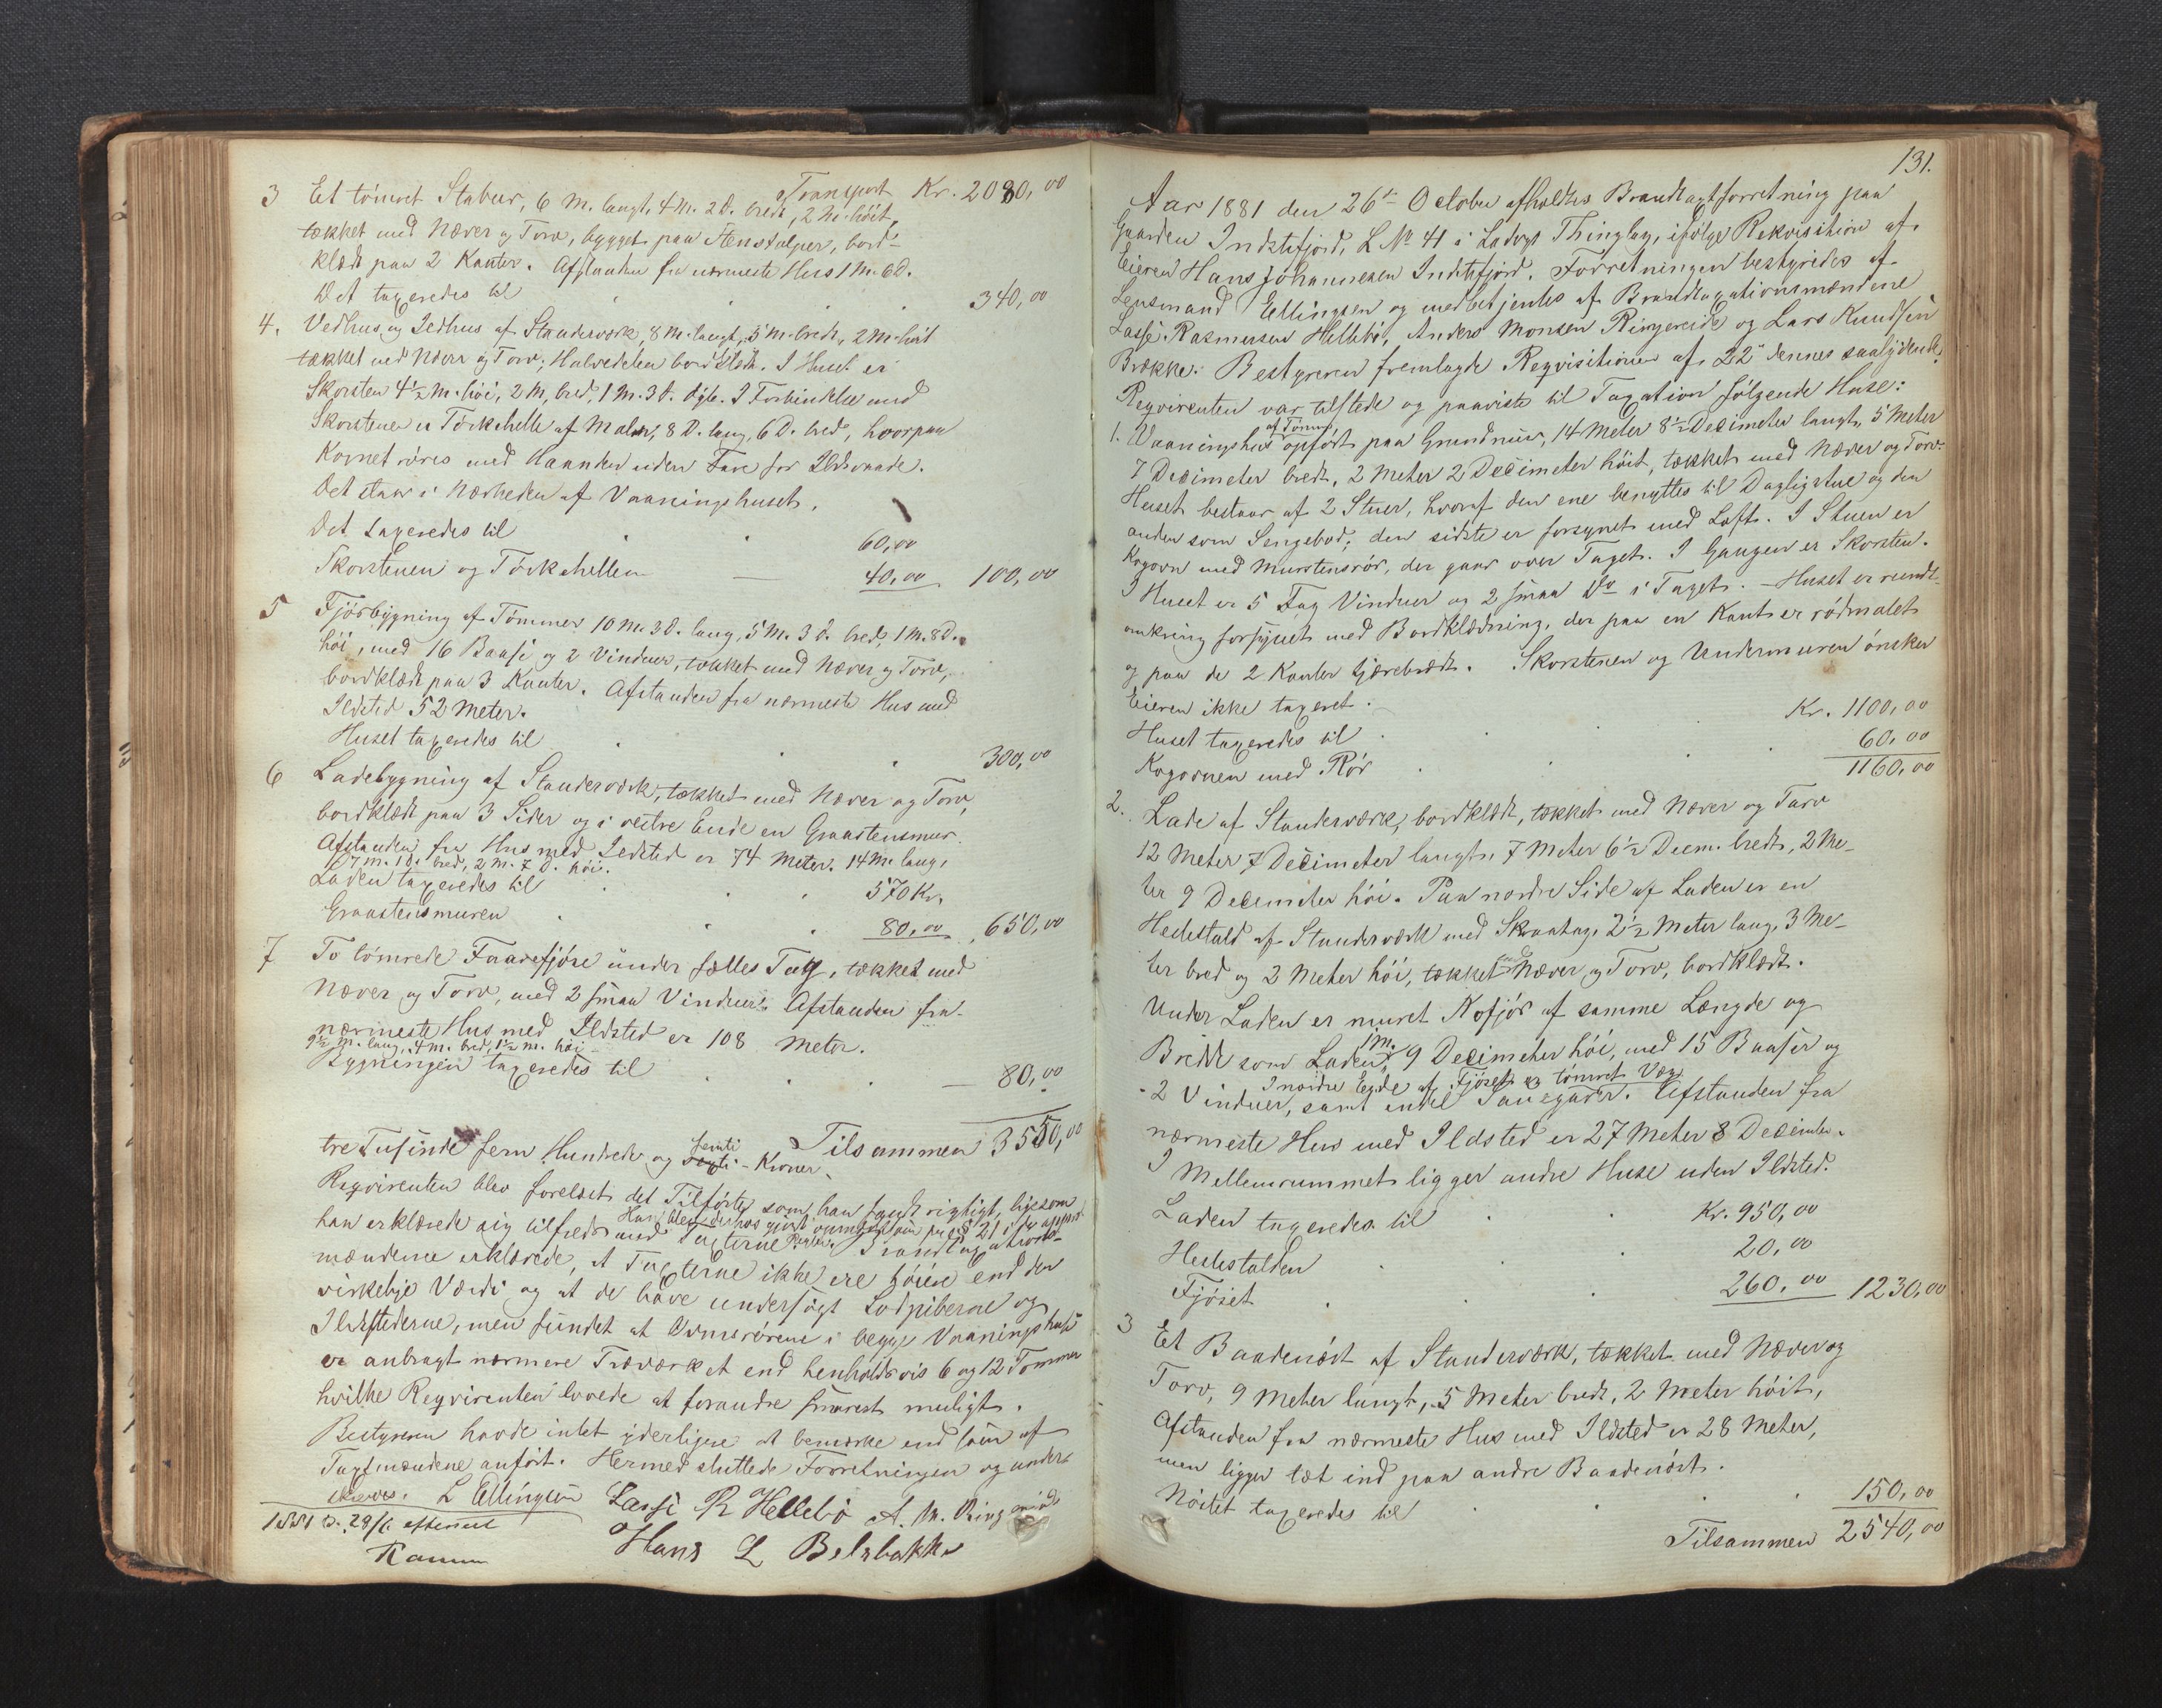 Transport Kr. 2080,00
3 Et tömret Stabur, 6 M. langt, 4 M. 2 D. bredt, 2 M. höit,
tækket med Næver og Torv, bygget paa Stenstolper, bord-
klædt paa 2 Kanter. Afstanden fra nærmeste Hus 1 M. 6 D.
Det taxeredes til 340,00
4. Vedhus og Ildhus af Standerværk, 8 M. langt, 5 M. bredt, 2 M. höit
tækket med Næver og Torv; Halvedelen bordklædt. I Huset er
Skorsten 4½ M. höi, 2 M. bred, 1 M. 3 D. dyb. I Forbindelse med
Skorstenen er Törkehelle af Malm, 8 D. lang, 6 D. bred, hvorpaa
Kornet röres med Haanden uden Fare for Ildsvaade.
Det staar i Nærheden af Vaaningshuset.
Det taxeredes til 60,00
Skorstenen og Törkehellen 40,00 100,00
5 Fjösbygning af Tömmer 10 M. 3 D. lang, 5 M. 3 D. bred, 1 M. 8 D.
höi, med 16 Baase og 2 Vinduer, tækket med Næver og Torv,
bordklædt paa 3 Kanter. Afstanden fra nærmeste Hus med
Ildsted 52 Meter.
Huset taxeredes til 300,00
6 Ladebygning af Standerværk, tækket med Næver og Torv,
bordklædt paa 3 Sider og i vestre Ende en Graastensmur.
Afstanden fra Hus med Ildsted er 74 Meter. 14 M. lang,
7 M. 1 D. bred, 2 M. 7 D. höi.
Laden taxeredes til 570 Kr.
Graastensmuren 80,00 650,00
7 To tömrede Faarefjöse under fælles Tag, tækket med
Næver og Torv, med 2 smaa Vinduer. Afstanden fra
nærmeste Hus med Ildsted er 108 Meter.
9½ M. lang, 4 M. bred, 1½ M. höi
Bygningen taxeredes til 80,00
Tilsammen 3550,00
tre Tusinde fem Hundrede og femti Kroner.
Reqvirenten blev forelæst det Tilförte som han fandt rigtigt, ligesom
han erklærede sig tilfreds med Taxterne. Brandtaxations-
mændene erklærede, at Taxterne ikke ere höiere end den
virkelige Værdi og at de have undersögt Lodpiberne og
Ildstederne, men fundet at Ovnsrörene i begge Vaaningshuse
er anbragt nærmere Træværket end henholdsvis 6 og 12 Tommer
hvilke Reqvirenten lovede at forandre snarest muligt.
Bestyreren havde intet yderligere at bemærke end som af
Taxtmændene anfört. Hermed sluttede Forretningen og under-
skreves. L Ellingsen Lasse R Hellebö A. M. Ringereide
Hans L Belsbakke
131.
Aar 1881 den 26de October afholdtes Brandtaxtforretning paa
Gaarden Indstefjord, L No 41 i Ladvigs Thinglag, ifölge Rekvisition af
Eieren Hans Johannesen Indstefjord. Forretningen bestyredes af
Lensmand Ellingsen og medbetjentes af Brandtaxationsmændene
Lasse Rasmussen Hellebö, Anders Monsen Ringereide og Lars Knudsen
Brække. Bestyreren fremlagde Reqvisitionen af 22de dennes saalydende
Reqvirenten var tilstede og paaviste til Taxation fölgende Huse:
1. Vaaningshus af Tömmer opfört paa Grundmur, 14 Meter 8½ Decimeter langt, 5 Meter
7 Decimeter bredt, 2 Meter 2 Decimeter höit, tækket med Næver og Torv.
Huset bestaar af 2 Stuer, hvoraf den ene benyttes til Dagligstue og den
anden som Sengebod; den sidste er forsynet med Loft. I Stuen er
Kogovn med Murstensrör, der gaar over Taget. I Gangen er Skorsten.
I Huset er 5 Fag Vinduer og 2 smaa Do i Taget. - Huset er rundt
omkring forsynet med Bordklædning, der paa en Kant er rödmalet
og paa de 2 Kanter tjærebrædt. Skorstenen og Undermuren önsker
Eieren ikke taxeret.
Huset taxeredes til Kr. 1100,00
Kogovnen med Rör 60,00
1160,00
2. Lade af Standerværk, bordklædt, tækket med Næver og Torv
12 Meter 7 Decimeter langt, 7 Meter 6½ Decm. bredt, 2 Me-
ter 9 Decimeter höi. Paa nordre Side af Laden er en
Hestestald af Standerværk med Skraatag, 2½ Meter lang, 3 Me-
ter bred og 2 Meter höi, tækket med Næver og Torv, bordklædt.
Under Laden er muret Kofjös af samme Længde og
Bredde som Laden, 1 M. 9 Decimeter höi, med 15 Baaser og
I nordre Ende af Fjöset er tömret Væg
2 Vinduer, samt endel Sauegarer. Afstanden fra
nærmeste Hus med Ildsted er 27 Meter 8 Decimeter.
I Mellemrummet ligger andre Huse uden Ildsted.
Laden taxeredes til Kr. 950,00
Hestestalden 20,00
Fjöset 260,00 1230,00
3 Et Baadenöst af Standerværk, tækket med Næver og
Torv, 9 Meter langt, 5 Meter bredt, 2 Meter höit,
Afstanden fra nærmeste Hus med Ildsted er 28 Meter,
men ligger tæt ind paa andre Baadenöst.
Nöstet taxeredes til 150,00
Tilsammen 2540,00